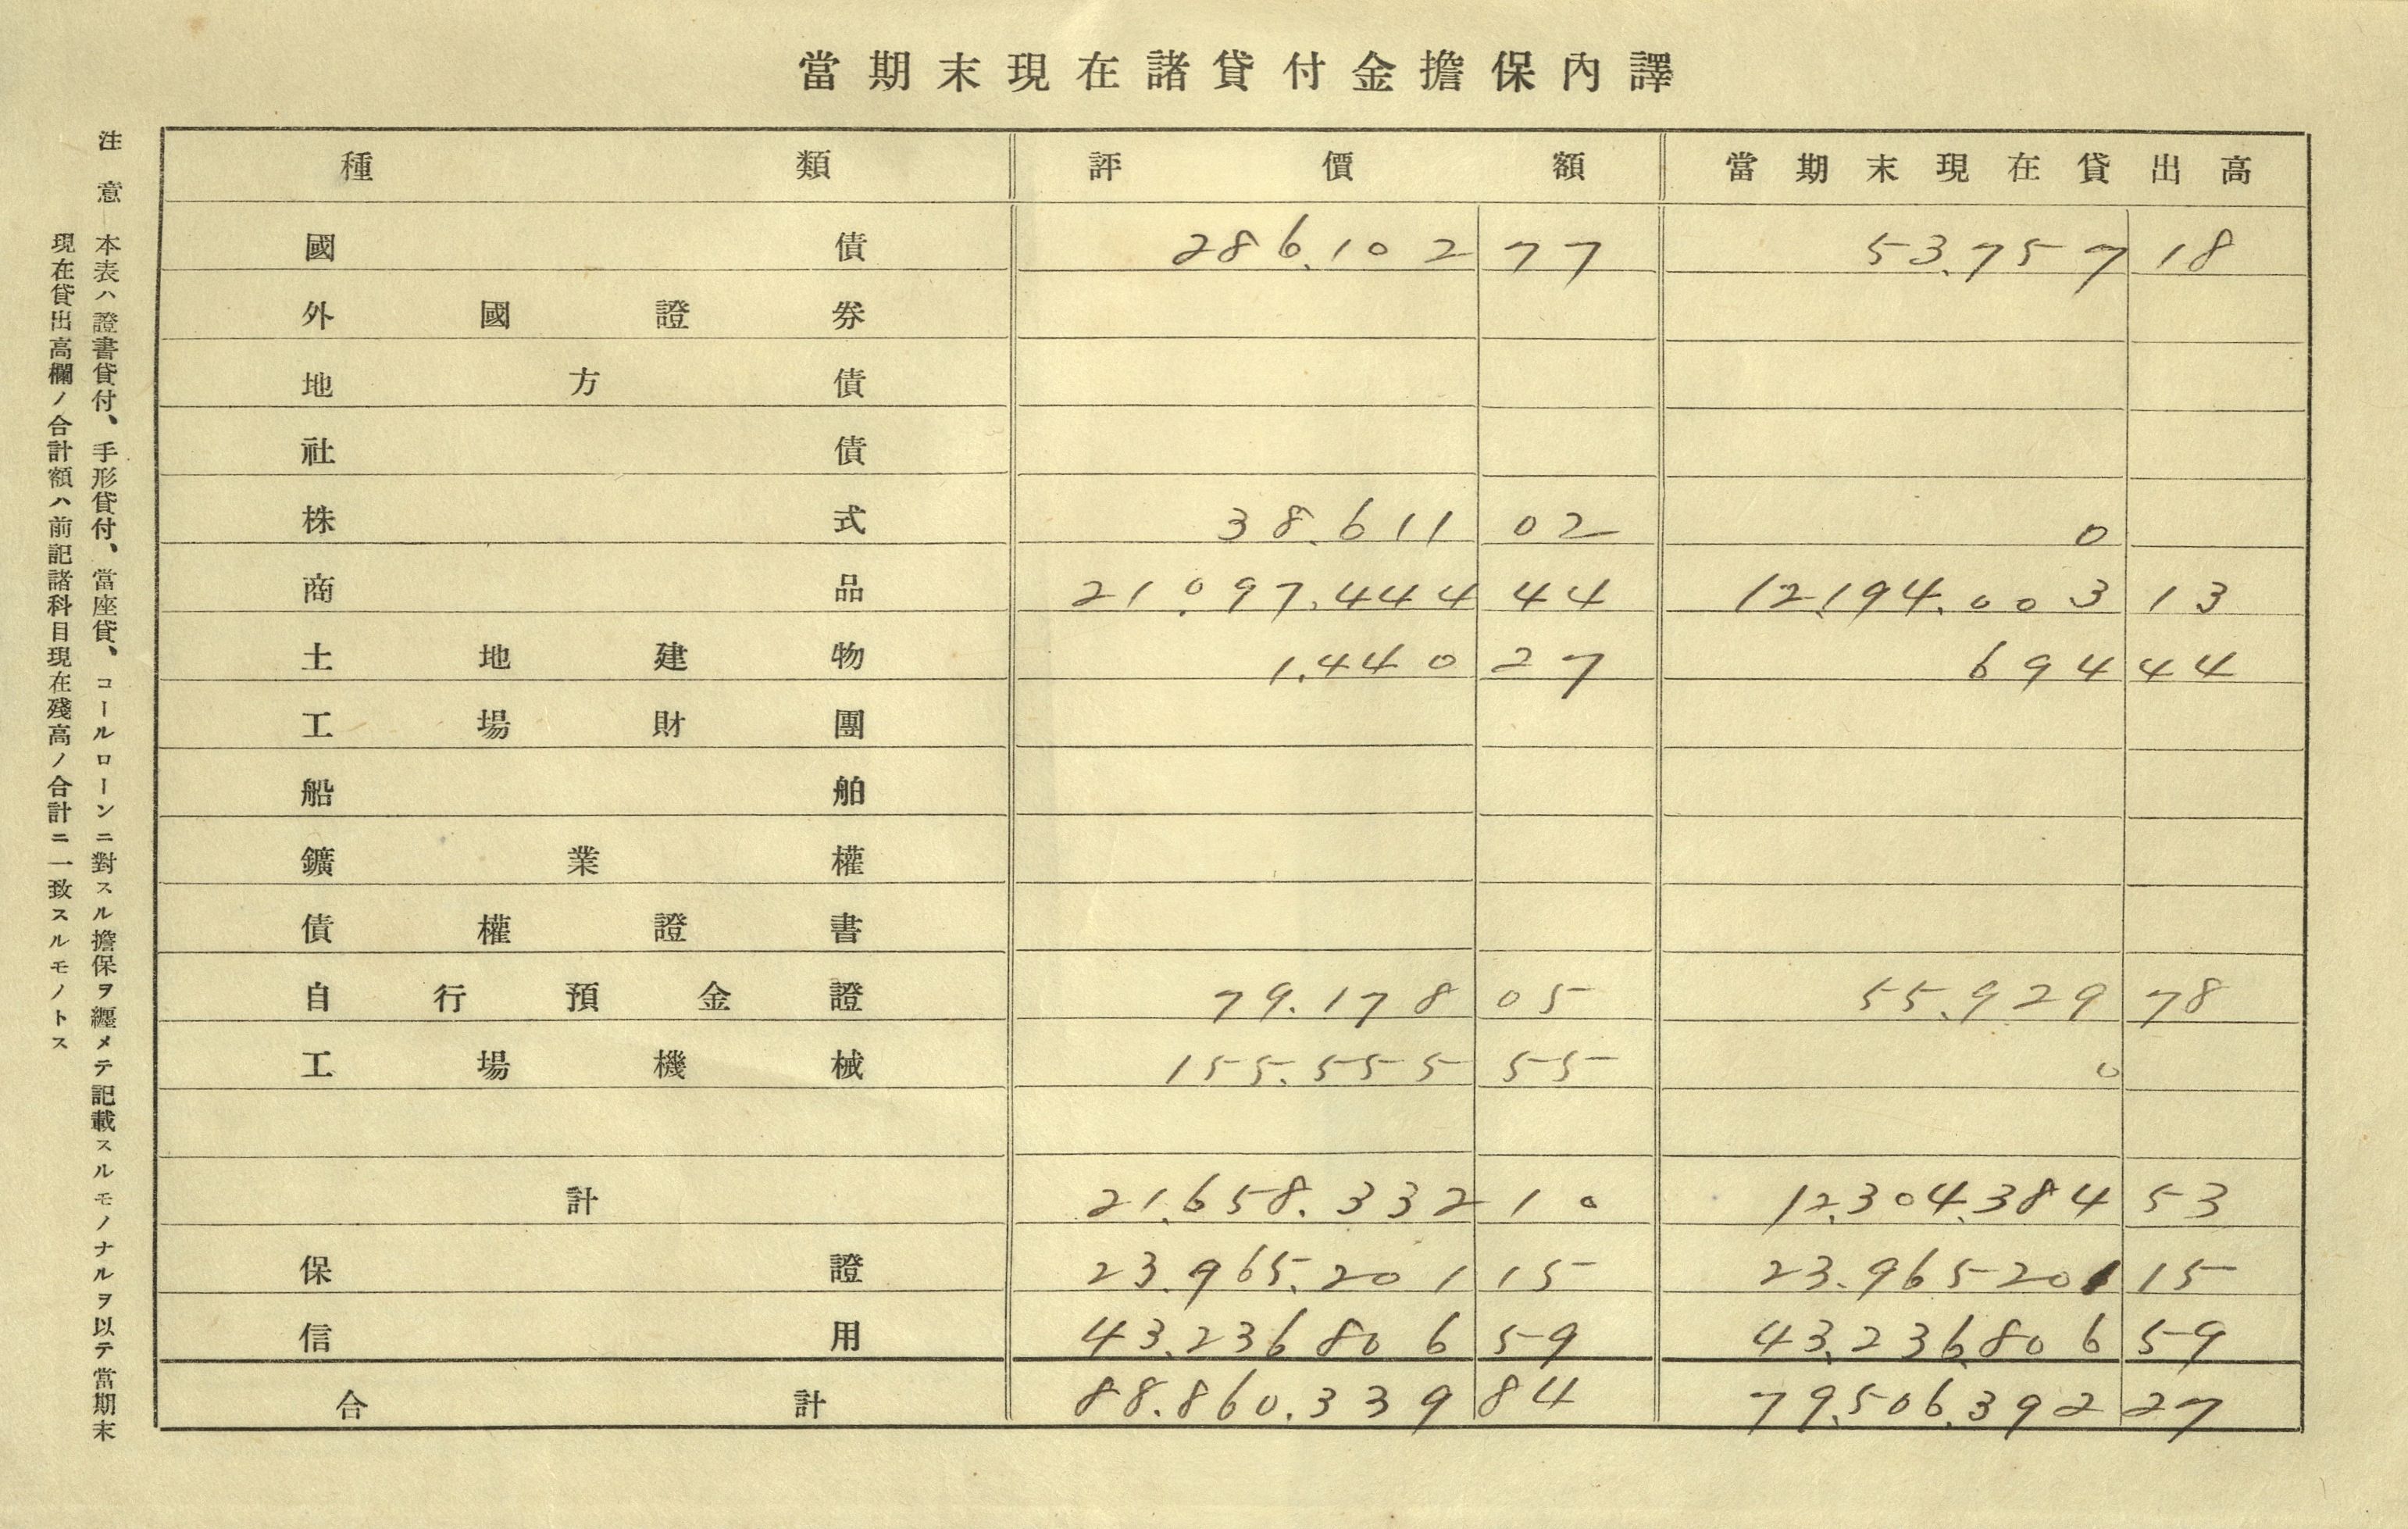 當期末現在諸貸付金擔保內譯
種類 評價額 當期末現在貸出高
國債 286.102 77 53.757 18
外國證券
地方債
社債
株式 38.611 02 0
商品 21.097.444 44 12.194.003 13
土地建物 1.440 27 694 44
工場財團
船舶
鑛業權
債權證書
自行預金證 79.178 05 55.929 78
工場機械 155.555 55 0
計 21.658.332 10 12.304.384 53
保證 23.965.201 15 23.965201 15
信用 43.236806 59 43.236.806 59
合計 88.860.339 84 79.506.392 27
注意
本表ハ證書貸付、手形貸付、當座貸、コールローンニ對スル擔保ヲ纒メテ記載スルモノナルヲ以テ當期末
現在貸出高欄ノ合計額ハ前記諸科目現在殘高ノ合計ニ一致スルモノトス